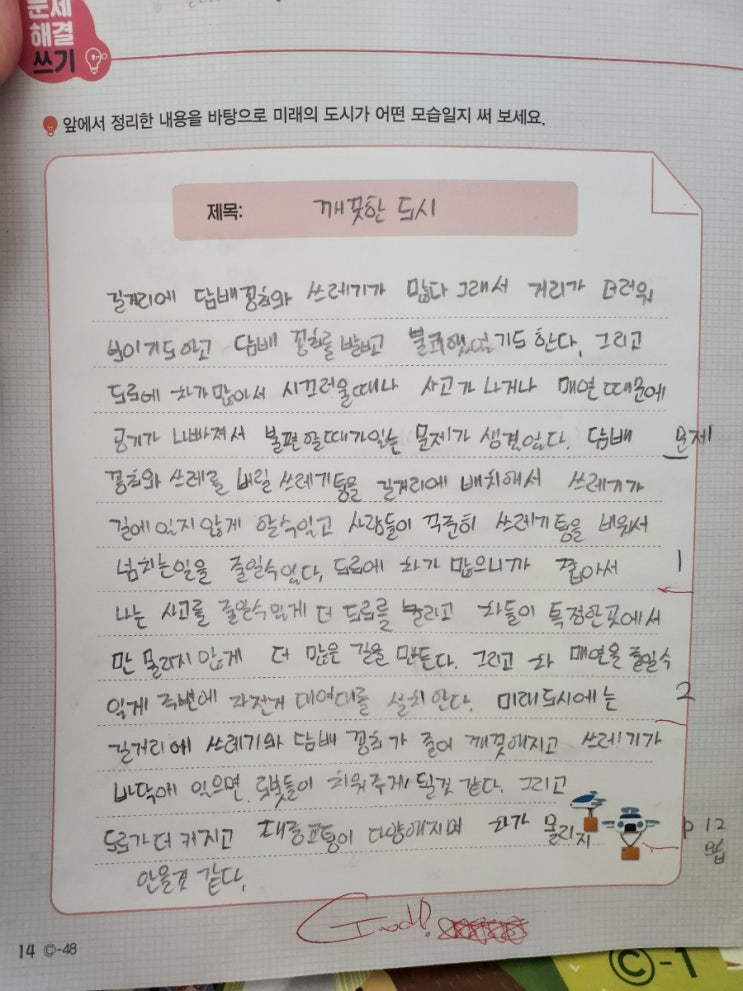 문제
해결
쓰기
앞에서 정리한 내용을 바탕으로 미래의 도시가 어떤 모습일지 써 보세요.
제목: 깨끗한 도시
길거리에 담배꽁초와 쓰레기가 많다 그래서 거리가 더러워
보이기도하고 담배 꽁초를 밟고 불쾌했었기도 한다. 그리고
도로에 차가많아서 시끄러울때나 사고가 나거나 매연 때문에
공기가 나빠져서 불편할때가있는 문제가 생겼었다. 담배 문제
꽁초와 쓰레를 버릴 쓰레기통을 길거리에 배치해서 쓰레기가
길에 있지 않게 할수있고 사람들이 꾸준히 쓰레기통을 비워서
넘치는일을 줄일수있다. 도로에 차가 많으니까 좁아서 1
나는 사고를 줄일수있게 더 도로를 늘리고 차들이 특정한곳에서
만 몰리지 않게 더 많은 길을 만든다. 그리고 차 매연을 줄일수
있게 주변에 자전거 대여대를 설치 한다. 미래도시에는 2
길거리에 쓰레기와 담배 꽁초가 줄어 깨끗해지고 쓰레기가
바닥에 있으면 로봇들이 치워주게 될것 같다. 그리고
도로가 더 커지고 대중교통이 다양해지며 차가 몰리지 p 12
않을것 같다. 모습
Good!
14 ©-48
©-1